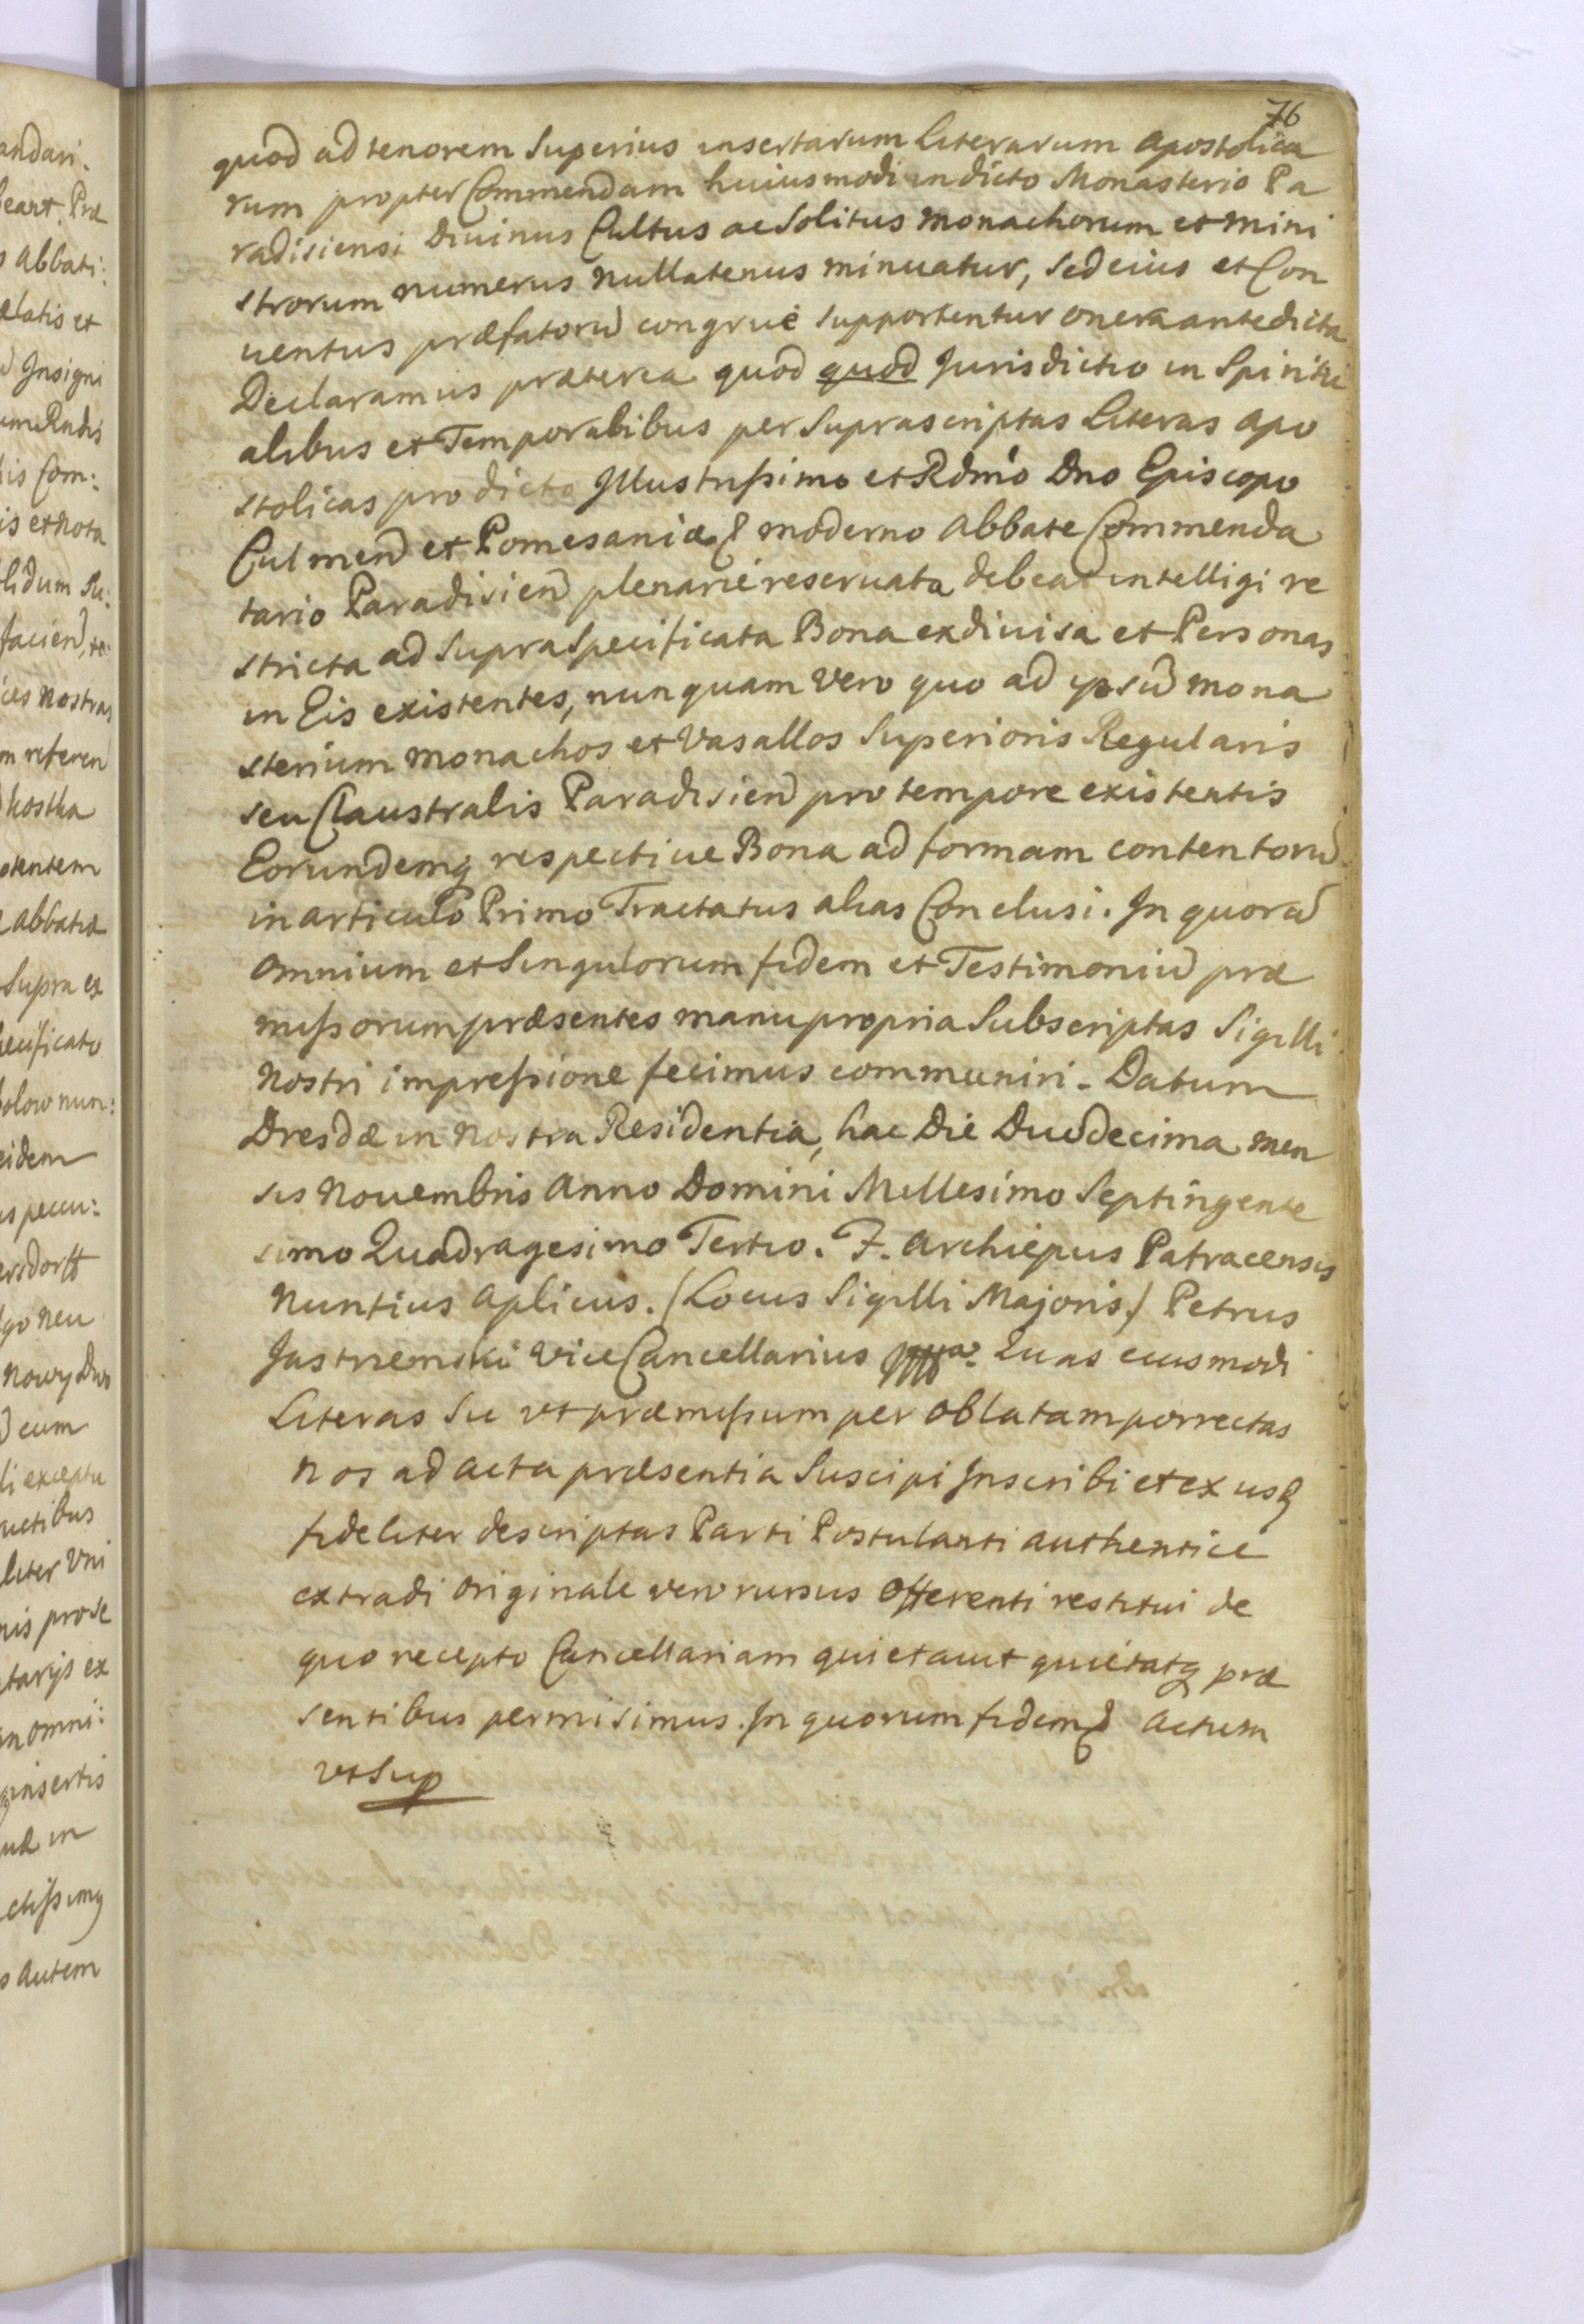 76
quod ad tenorem Superius insertarum Literarum Apostolica
rum propter Commendam huiusmodi in dicto Monasterio Pa
radisiensi Diuinus Cultus ac Solitus Monachorum et Mini
strorum numerus nullatenus minuatur, sed eius et Con
uentus præfatorũ congruè supportentur onera antedicta
Declaramus præterea quod quod Jurisdictio in Spiritu
alibus et Temporabibus per Suprascriptas Literas Apo
stolicas pro dicto Illustrissimo et Rdmo Dno Episcopo
Culmen et Pomesaniæ & moderno Abbate Commenda
tario Paradisien plenariè reseruata debeat intelligi re
stricta ad Supra Specificata Bona exdiuisa et Personas
in Eis existentes, nunquam Vero quo ad ipsũ Mona
sterium Monachos et Vasallos Superioris Regularis
seu Claustralis Paradisien pro tempore existentis
Eorundemq respectiue Bona ad formam contentorũ
in articulo Primo Tractatus alias Conclusi. In quorũ
Omnium et Singulorum fidem et Testimoniũ præ
missorum præsentes manu propria Subscriptas Sigilli
Nostri impressione fecimus communiri. Datum
Dresdæ in Nostra Residentia, hac Die Duodecima Men
sis Nouembris Anno Domini Millesimo Septingente
simo Quadragesimo Tertio. F. Archiepus Patracensis
Nuntius Aplicus. (Locus Sigilli Majoris) Petrus
Jastrzemski Vice Cancellarius Quas eiusmodi
Literas Sic ut præmissum per Oblatam porrectas
Nos ad acta præsentia Suscipi Inscribi et ex usq
fideliter descriptas Parti Postulanti authentice
extradi Originale vero rursus Offerenti restitui de
quo recepto Cancellariam quietauit quietatq præ
sentibus permisimus. In quorum fidem & Actum
ut Sup
andari.
leant. Præ
s Abbati:
ælatis et
Insigni
is Com:
is et Nota
lidum
facien
ces Nostras
m referen
Kostka
otentem
Abbatiæ
Supra ex
ecificato
olow nun:
eidem
ersdorff
go neu
Nowy Dwo
eum
li exceptu
uctibus
liter Uni
nis pro se
tarijs ex
in omni:
insertis
uæ in
ctissimq
s autem